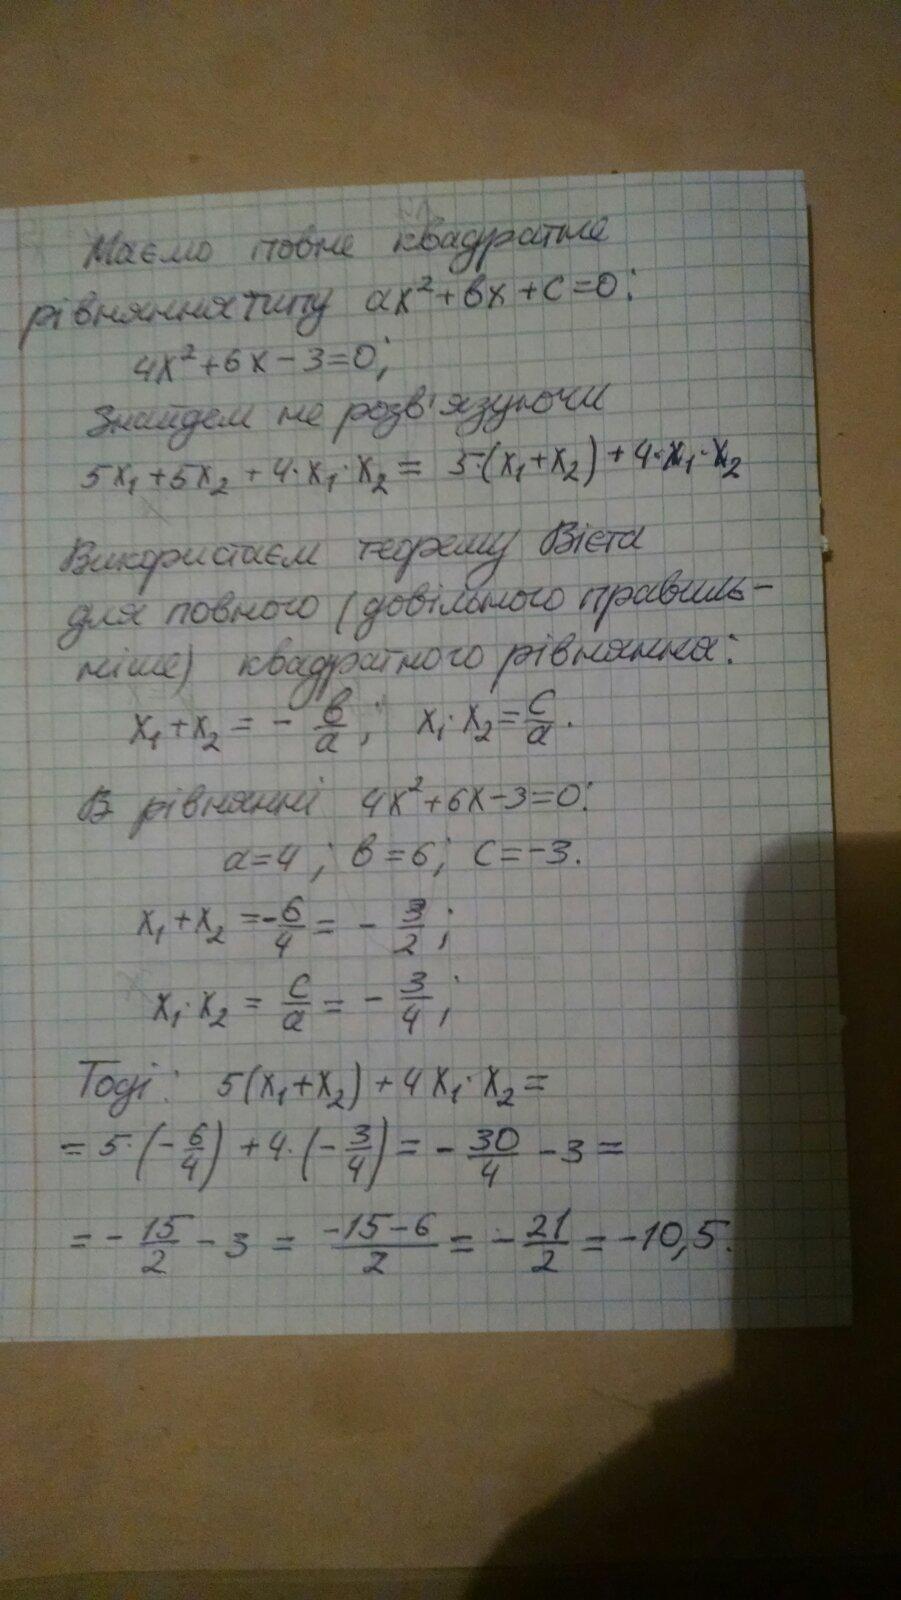 Маємо повне квадратне
рівняння типу ax²+bx+c=0:
4x²+6x-3=0;
Знайдем не розв'язуючи
5x₁+5x₂+4·x₁·x₂= 5·(x₁+x₂)+4·x₁·x₂
Використаєм теорему Вієта
для повного (довільного правиль-
ніше) квадратного рівняння:
x₁+x₂ = - b/a; x₁·x₂ = c/a.
В рівнянні 4x²+6x-3=0:
a=4; b=6; c=-3.
x₁+x₂ =-6/4 = - 3/2;
x₁·x₂ = c/a = - 3/4;
Тоді: 5(x₁+x₂)+4x₁·x₂=
= 5·(-6/4)+4·(-3/4)= - 30/4 -3=
= - 15/2 - 3 = (-15-6)/2 = - 21/2 = -10,5.